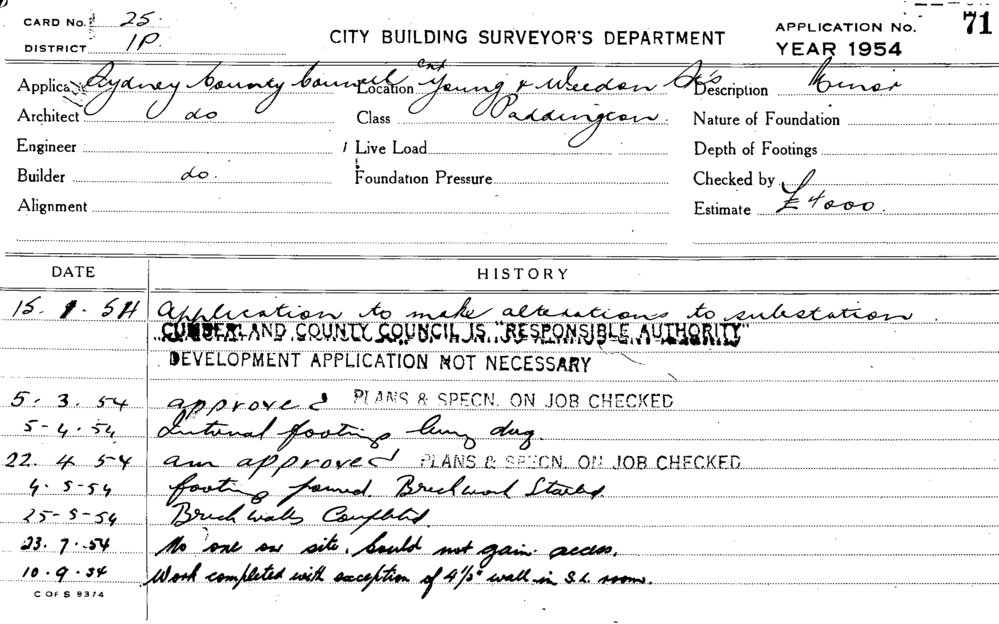 CARD No. 25.
DISTRICT 1P.
CITY BUILDING SURVEYOR'S DEPARTMENT
APPLICATION No. 71
YEAR 1954
Applica Sydney County Council Location Cnr Young & Weedon St's Description Minor
Architect do Class Paddington. Nature of Foundation
Engineer Live Load Depth of Footings
Builder do. Foundation Pressure Checked by
Alignment Estimate £4000.
DATE HISTORY
15. 1. 54 Application to make alterations to substation.
CUMBERLAND COUNTY COUNCIL IS "RESPONSIBLE AUTHORITY"
DEVELOPMENT APPLICATION NOT NECESSARY
5. 3. 54 approved PLANS & SPECN. ON JOB CHECKED
5-4.54 Internal footings being dug.
22. 4 54 am approved PLANS & SPECN. ON JOB CHECKED
4. 5-54 footing poured. Brickwork Started.
25-5-54 Brick walls Completed.
23. 7. 54 No one on site. Could not gain access.
10. 9. 54 Work completed with exception of 4½" wall in S.L. room.
C OF S 9374